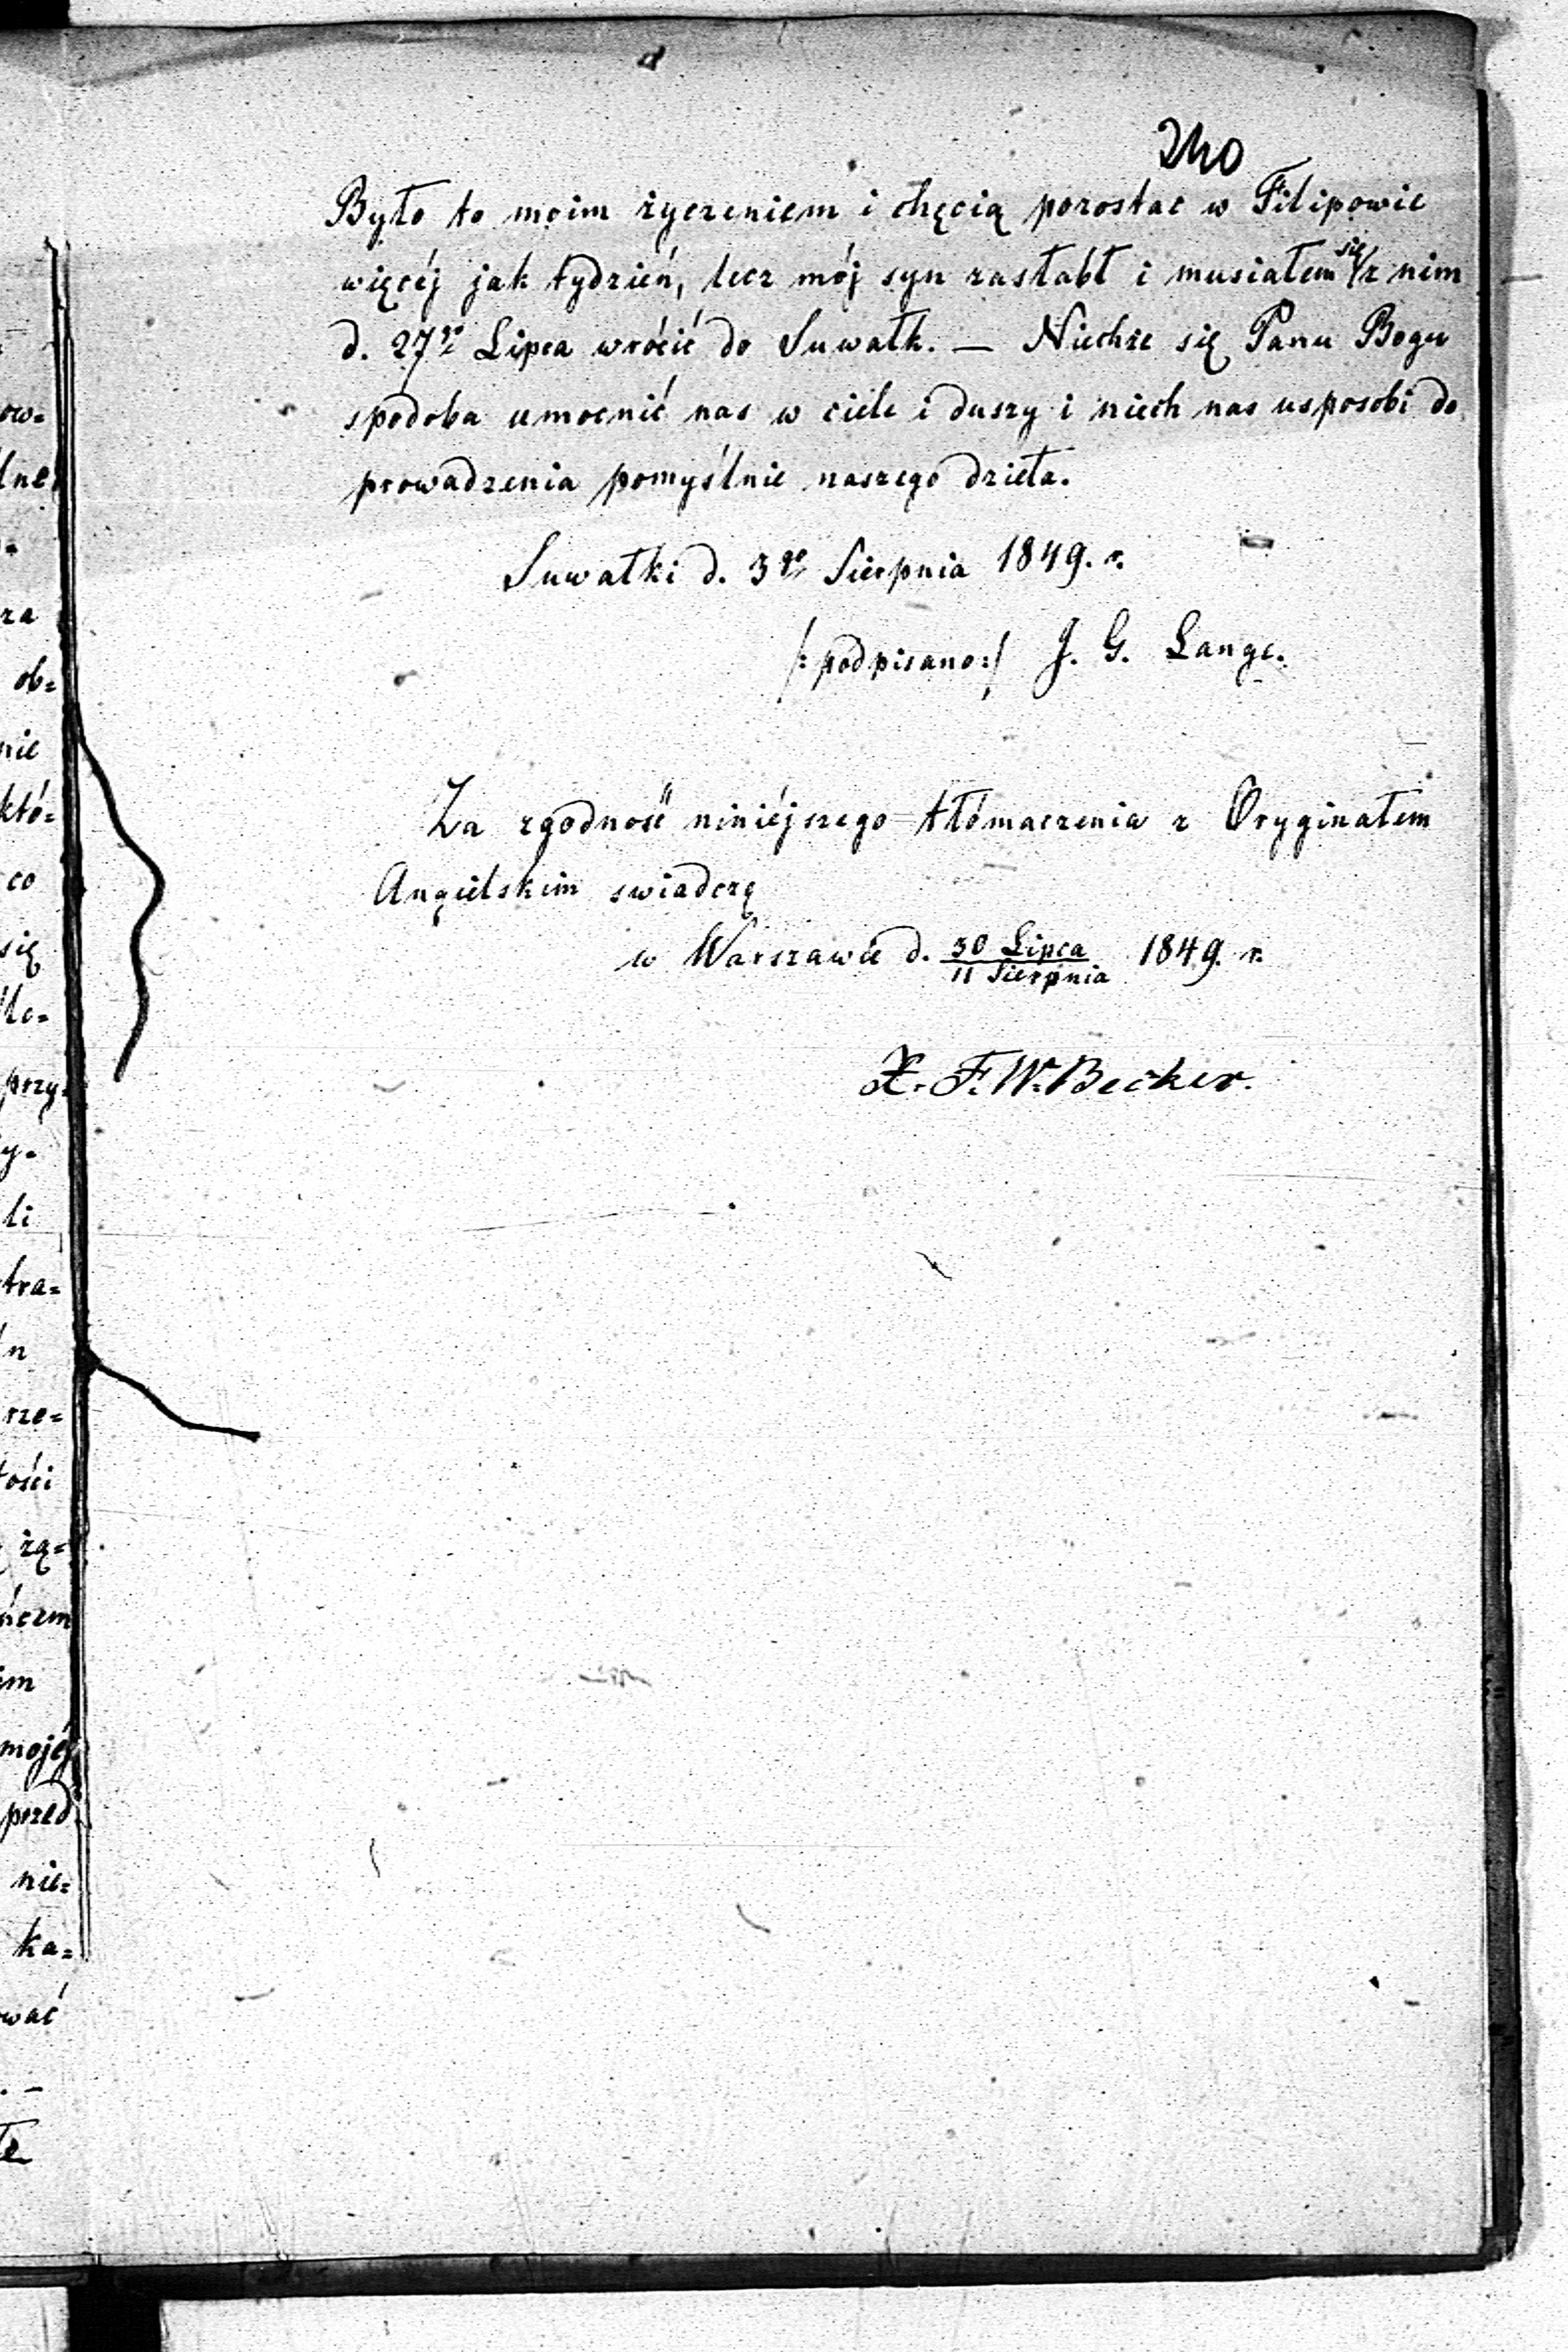 240
Było to moim życzeniem i chęcią pozostać w Filipowie
więcéj jak tydzień, lecz mój syn zasłabł i musiałem się z nim
d. 27go Lipca wrócić do Suwałk. — Niechże się Panu Bogu
spodoba umocnić nas w ciele i duszy i niech nas usposobi do
prowadzenia pomyślnie naszego dzieła.
Suwałki d. 3go Sierpnia 1849. r.
/: podpisano :/ J. G. Lange.
Za zgodność niniéjszego tłómaczenia z Oryginałem
Angielskim świadczę
w Warszawie d. 30 Lipca 1849. r.
11 Sierpnia
X. F. W. Becker.
ow=
lne
za
ob=
nie
któ=
co
się
przy=
y=
li
tra=
rze=
tości
żą=
im
mojéj
przed
nie=
ka=
wać